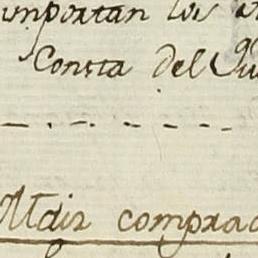 importan los
Consta del
Maiz comprad